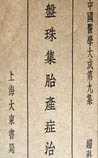 中國醫學大成第九集
盤珠集胎產症治
上海大東書局